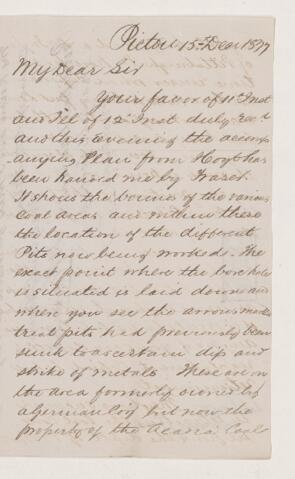 Pictou 15th Decr 1877
My Dear Sir
Your favor of 11th Inst
and Tel of 12th Inst duly recd
and this Evening the accomp
anying Plan from Hoyt has
been handed me by Fraser.
It shows the bounds of the various
Coal areas and within these
the location of the different
Pits now being worked. The
exact point where the bore hole
is situated is laid down and
where you see the arrows marked
trial pits had previously been
sunk to ascertain dip and
strike of metals These are on
the area formerly owned by
a German Coy but now the
property of the Acadia Coal